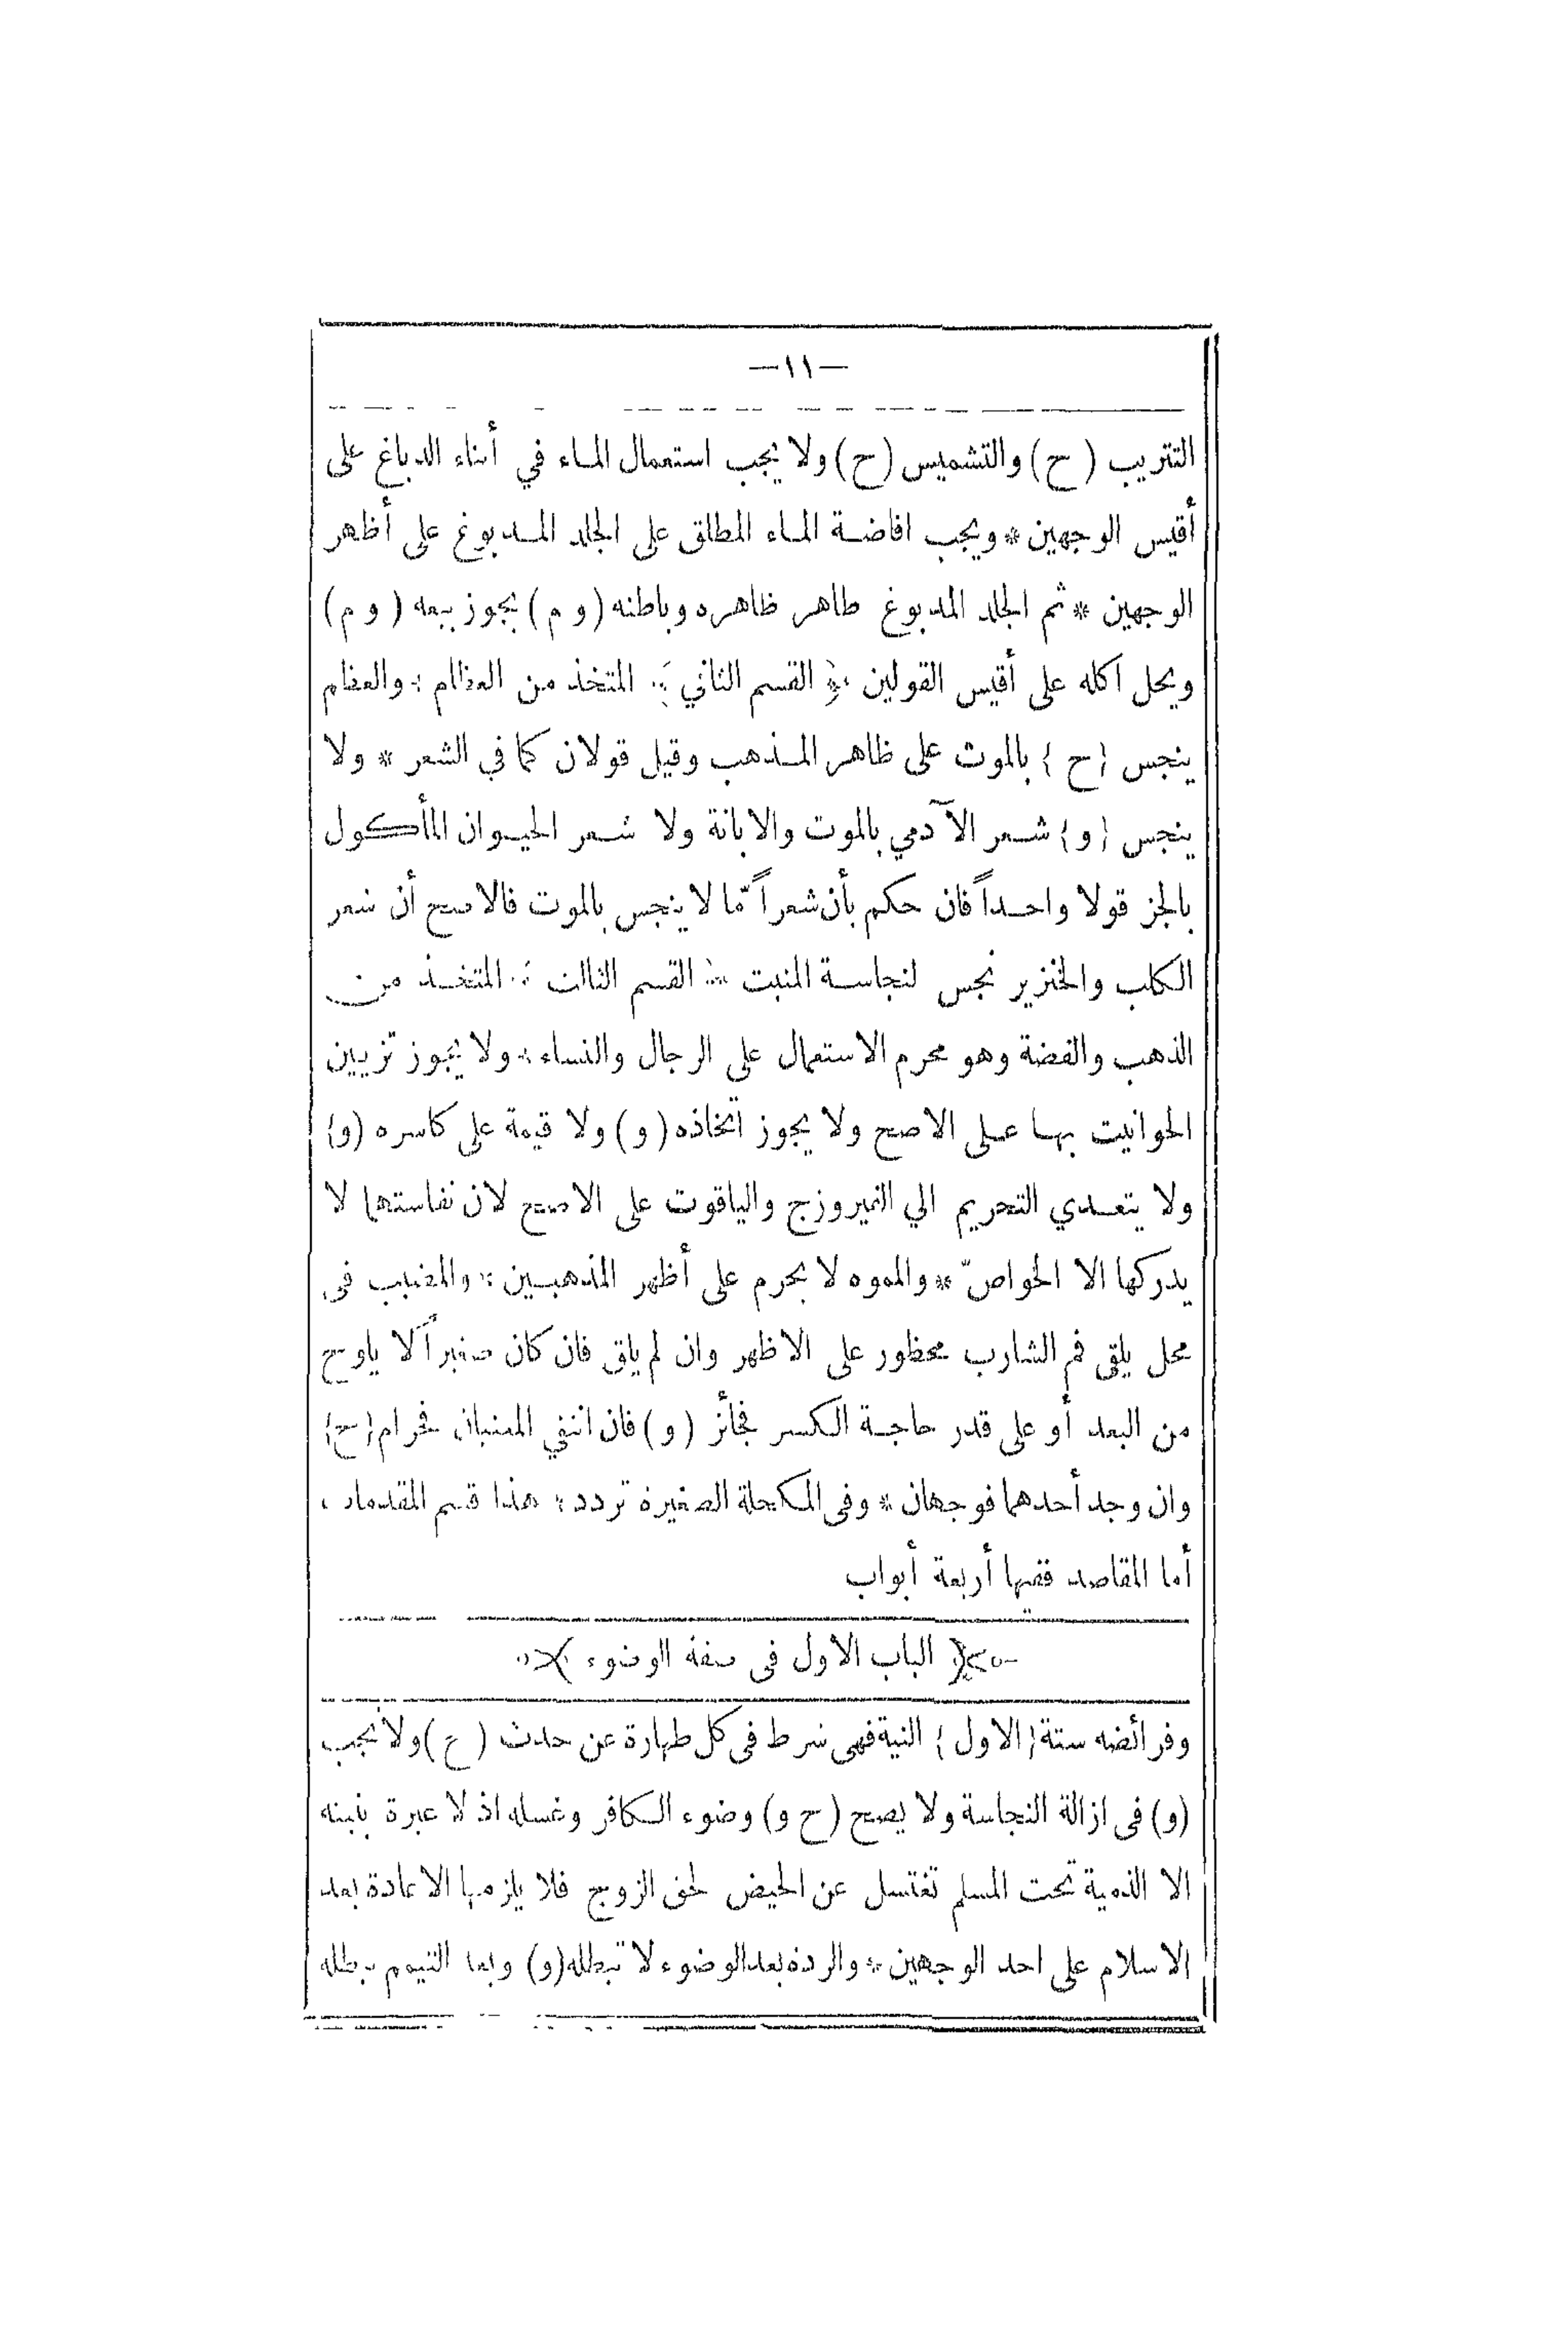 —١١—
التتريب (ح) والتشميس (ح) ولا يجب استعمال الماء في أثناء الدباغ على
أقيس الوجهين * ويجب افاضة الماء المطلق على الجلد المدبوغ على أظهر
الوجهين * ثم الجلد المدبوغ طاهر ظاهره وباطنه (و م) يجوز بيعه (و م)
ويحل اكله على أقيس القولين * القسم الثاني * المتخذ من العظام * والعظام
ينجس (ح) بالموت على ظاهر المذهب وقيل قولان كما في الشعر * ولا
ينجس (و) شعر الآدمي بالموت والابانة ولا شعر الحيوان المأكول
بالجز قولا واحداً فان حكم بأن شعراً مّا لا ينجس بالموت فالاصح أن شعر
الكلب والخنزير نجس لنجاسة المنبت * القسم الثالث * المتخذ من
الذهب والفضة وهو محرم الاستعمال على الرجال والنساء * ولا يجوز تزيين
الحوانيت بها على الاصح ولا يجوز اتخاذه (و) ولا قيمة على كاسره (و)
ولا يتعدي التحريم الي الفيروزج والياقوت على الاصح لان نفاستها لا
يدركها الا الخواصّ * والمموه لا يحرم على أظهر المذهبين * والمضبب فى
محل يلقى فم الشارب محظور على الاظهر وان لم يلق فان كان صغيراً لا يلوح
من البعد أو على قدر حاجة الكسر فجائز (و) فان انتفي المعنيان فحرام (ح)
وان وجد أحدهما فوجهان * وفى المكحلة الصغيرة تردد * هذا قسم المقدمات *
أما المقاصد ففيها أربعة أبواب
الباب الاول فى صفة الوضوء
وفرائضه ستة (الاول) النية فهى شرط فى كل طهارة عن حدث (ح) ولا تجب
(و) فى ازالة النجاسة ولا يصح (ح و) وضوء الكافر وغسله اذ لا عبرة بنيته
الا الذمية تحت المسلم تغتسل عن الحيض لحق الزوج فلا يلزمها الاعادة بعد
الاسلام على احد الوجهين * والردة بعد الوضوء لا تبطله (و) وبعد التيمم يبطله